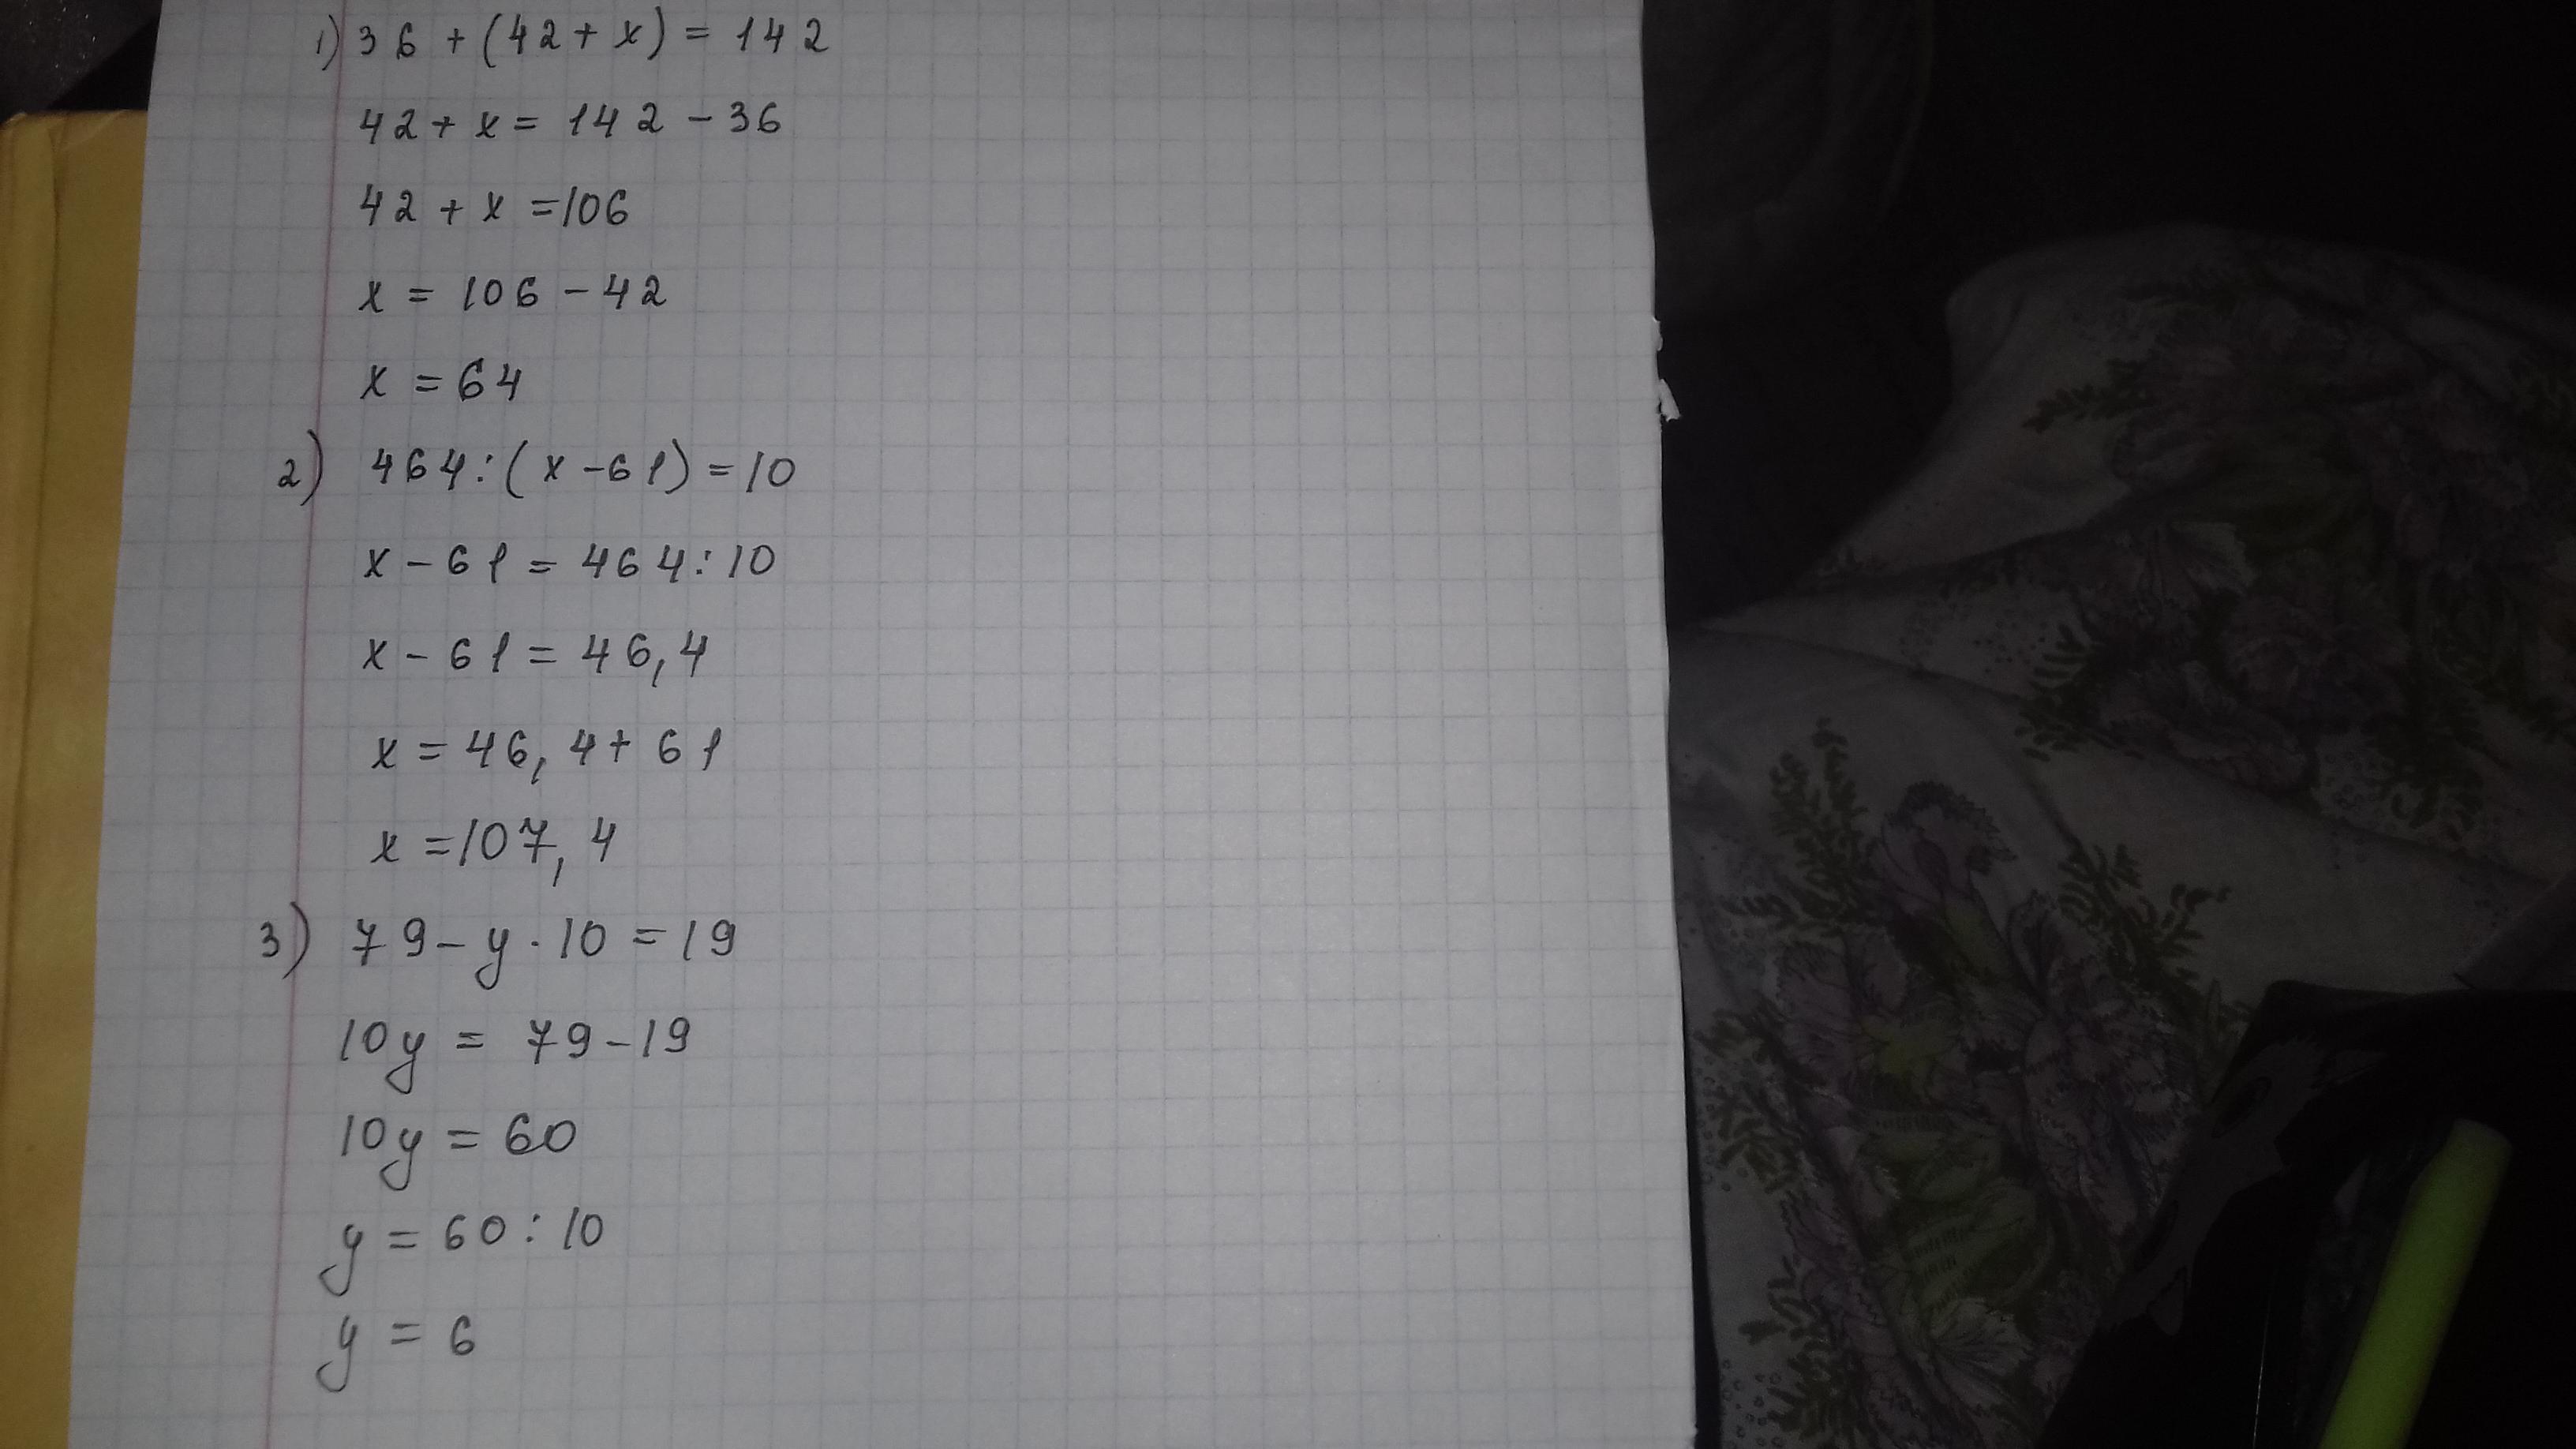 1) 36 + (42 + x) = 142
42 + x = 142 - 36
42 + x = 106
x = 106 - 42
x = 64
2) 464 : (x - 61) = 10
x - 61 = 464 : 10
x - 61 = 46,4
x = 46,4 + 61
x = 107,4
3) 79 - y · 10 = 19
10y = 79 - 19
10y = 60
y = 60 : 10
y = 6